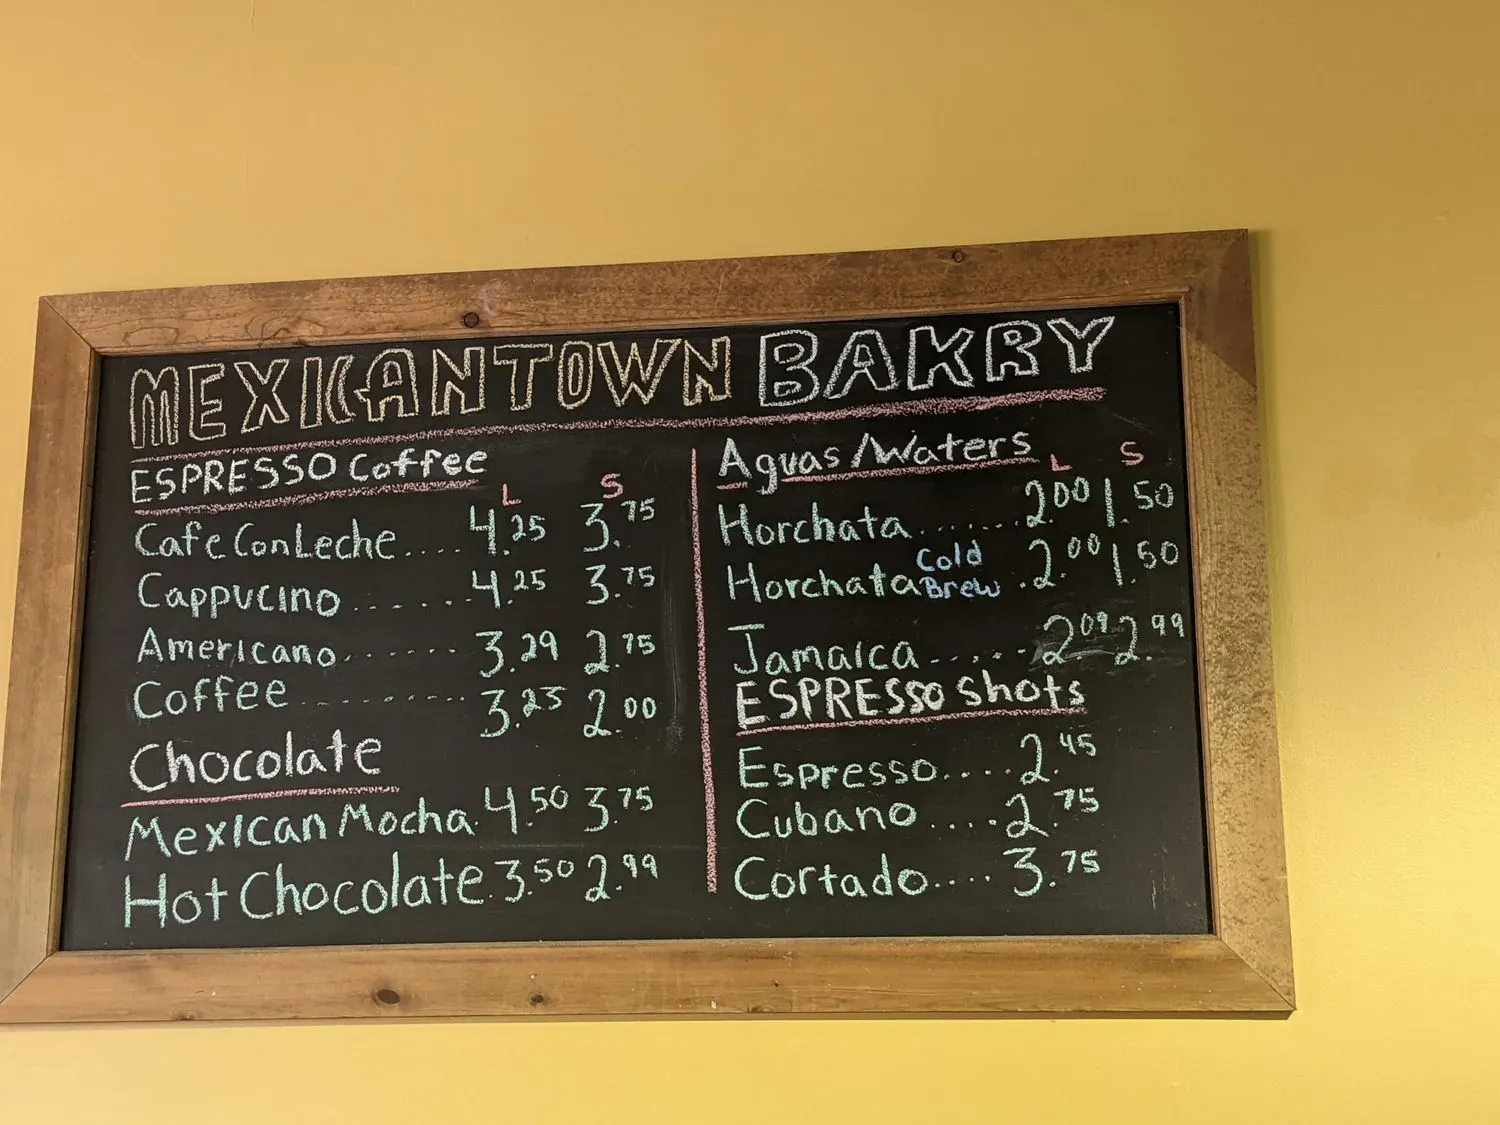 MEXICANTOWN BAKRY
ESPRESSO Coffee
L S
Cafe Con Leche.... 4.25 3.75
Cappucino....... 4.25 3.75
Americano....... 3.29 2.75
Coffee.......... 3.25 2.00
Chocolate
Mexican Mocha. 4.50 3.75
Hot Chocolate. 3.50 2.99
Aguas/Waters
L S
Horchata....... 2.00 1.50
Horchata Cold Brew . 2.00 1.50
Jamaica....... 2.09 2.99
ESPRESSO Shots
Espresso.... 2.45
Cubano.... 2.75
Cortado.... 3.75